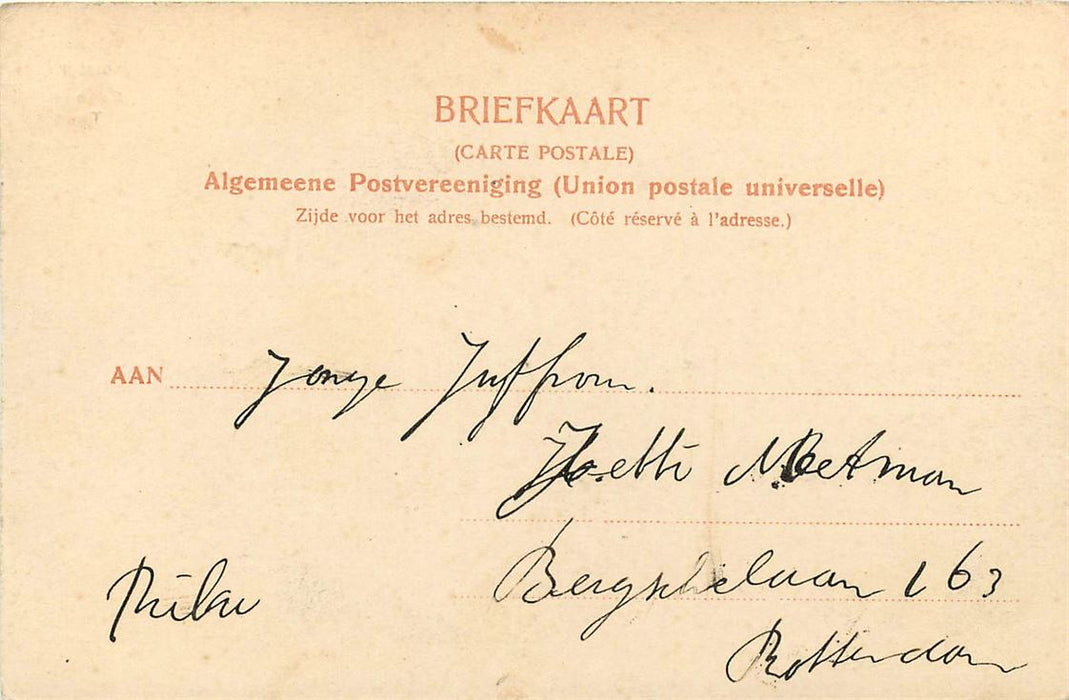 BRIEFKAART
(CARTE POSTALE)
Algemeene Postvereeniging (Union postale universelle)
Zijde voor het adres bestemd. (Côté réservé à l'adresse.)
AAN Jonge Juffrouw.
Metman
Bergschelaan 163
Rotterdam